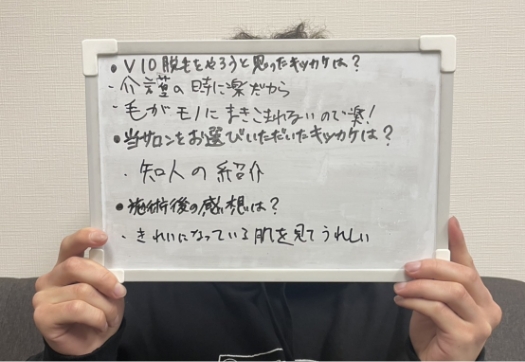 ● VIO脱毛をやろうと思ったキッカケは？
・介護の時に楽だから
・毛がモノにまきこまれないので楽！
●当サロンをお選びいただいたキッカケは？
・知人の紹介
●施術後の感想は？
・きれいになっている肌を見てうれしい